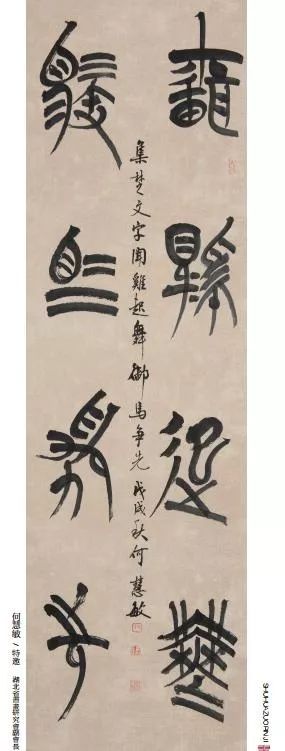 聞雞起舞
御馬爭先
集楚文字聞雞起舞御馬争先 戊戌秋何慧敏
何慧敏 / 特邀 湖北省書畫研究會副會長
SHUHUAZUOPINJI